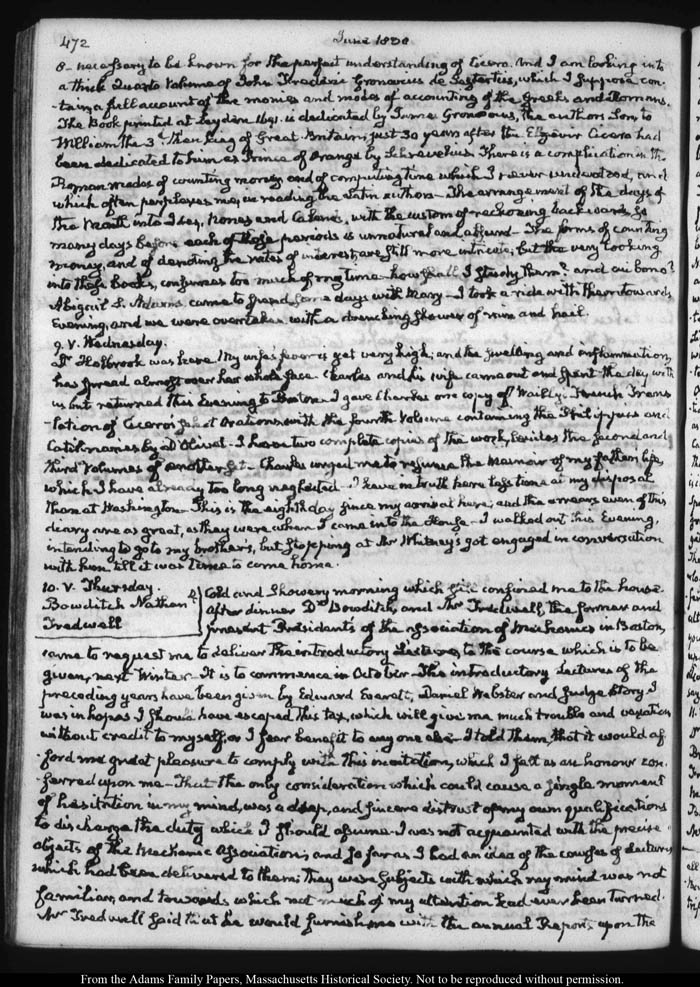 472 June 1830
8- necessary to be known for the perfect understanding of Cicero. And I am looking into
a thick Quarto Volume of John Frederic Gronovius de Sestertiis, which I suppose con-
-tains a full account of the monies and modes of accounting of the Greeks and Romans.
The Book printed at Leyden 1691. is dedicated by James Gronovius, the author's Son, to
William the 3d. then King of Great Britain, just 30 years after the Elzevir Cicero had
been dedicated to him as Prince of Orange by Schrevelius. There is a complication in the
Roman modes of counting money and of computing time which I never understood, and
which often perplexes me, in reading the Latin authors— The arrangement of the days of
the Month into Ides, Nones and Calends, with the custom of reckoning backwards, so
many days before each of those periods is unnatural and absurd— The forms of counting
money, and of denoting the rates of interest, are still more intricate; but the very looking
into these books, consumes too much of my time— how shall I study them? and cui bono?
Abigail S. Adams came to spend some days with Mary— I took a ride with them towards
Evening, and we were overtaken with a drenching shower of rain and hail.
9. V. Wednesday.
Dr Holbrook was here. My wife's fever is yet very high; and the swelling and inflammation,
has spread almost over her whole face. Charles and his wife came out and spent the day, with
us but returned this Evening to Boston. I gave Charles one copy of Wailly's French Trans
-lation of Cicero's select Orations with the fourth Volume containing the Philippics and
Catilinaries by D'Olivet— I have two complete copies of the work, besides the second and
third Volumes of another set— Charles urged me to resume the Memoir of my father's life,
which I have already too long neglected— I have in truth here less time at my disposal
than at Washington— This is the eighth day since my arrival here; and the arrears even of this
diary are as great, as they were when I came into the House— I walked out this Evening,
intending to go to my brother's, but stopping at Mr Whitney's got engaged in conversation
with him till it was time to come home.
10. V. Thursday.
Bowditch Nathan
Tredwell
Cold and Showery morning which still confined me to the house.
After dinner Dr Bowditch, and Mr Tredwell, the former and
present Presidents of the association of Mechanics in Boston,
came to request me to deliver the introductory Lecture, to the course which is to be
given, next Winter— It is to commence in October— The introductory Lectures of the
preceding years have been given by Edward Everett, Daniel Webster and Judge Story. I
was in hopes I should have escaped this tax, which will give me much trouble and vexation
without credit to myself, or I fear benefit to any one else— I told them, that it would af
-ford me great pleasure to comply with this invitation, which I felt as an honour con
-ferred upon me— That the only consideration which could cause a single moment
of hesitation in my mind, was a deep, and sincere distrust of my own qualifications
to discharge the duty which I should assume. I was not acquainted with the precise
objects of the Mechanic Association, and so far as I had an idea of the courses of Lectures
which had been delivered to them; they were subjects with which my mind was not
familiar, and towards which not much of my attention had ever been turned.
Mr Tredwell said that he would furnish me with the annual Reports upon the
From the Adams Family Papers, Massachusetts Historical Society. Not to be reproduced without permission.